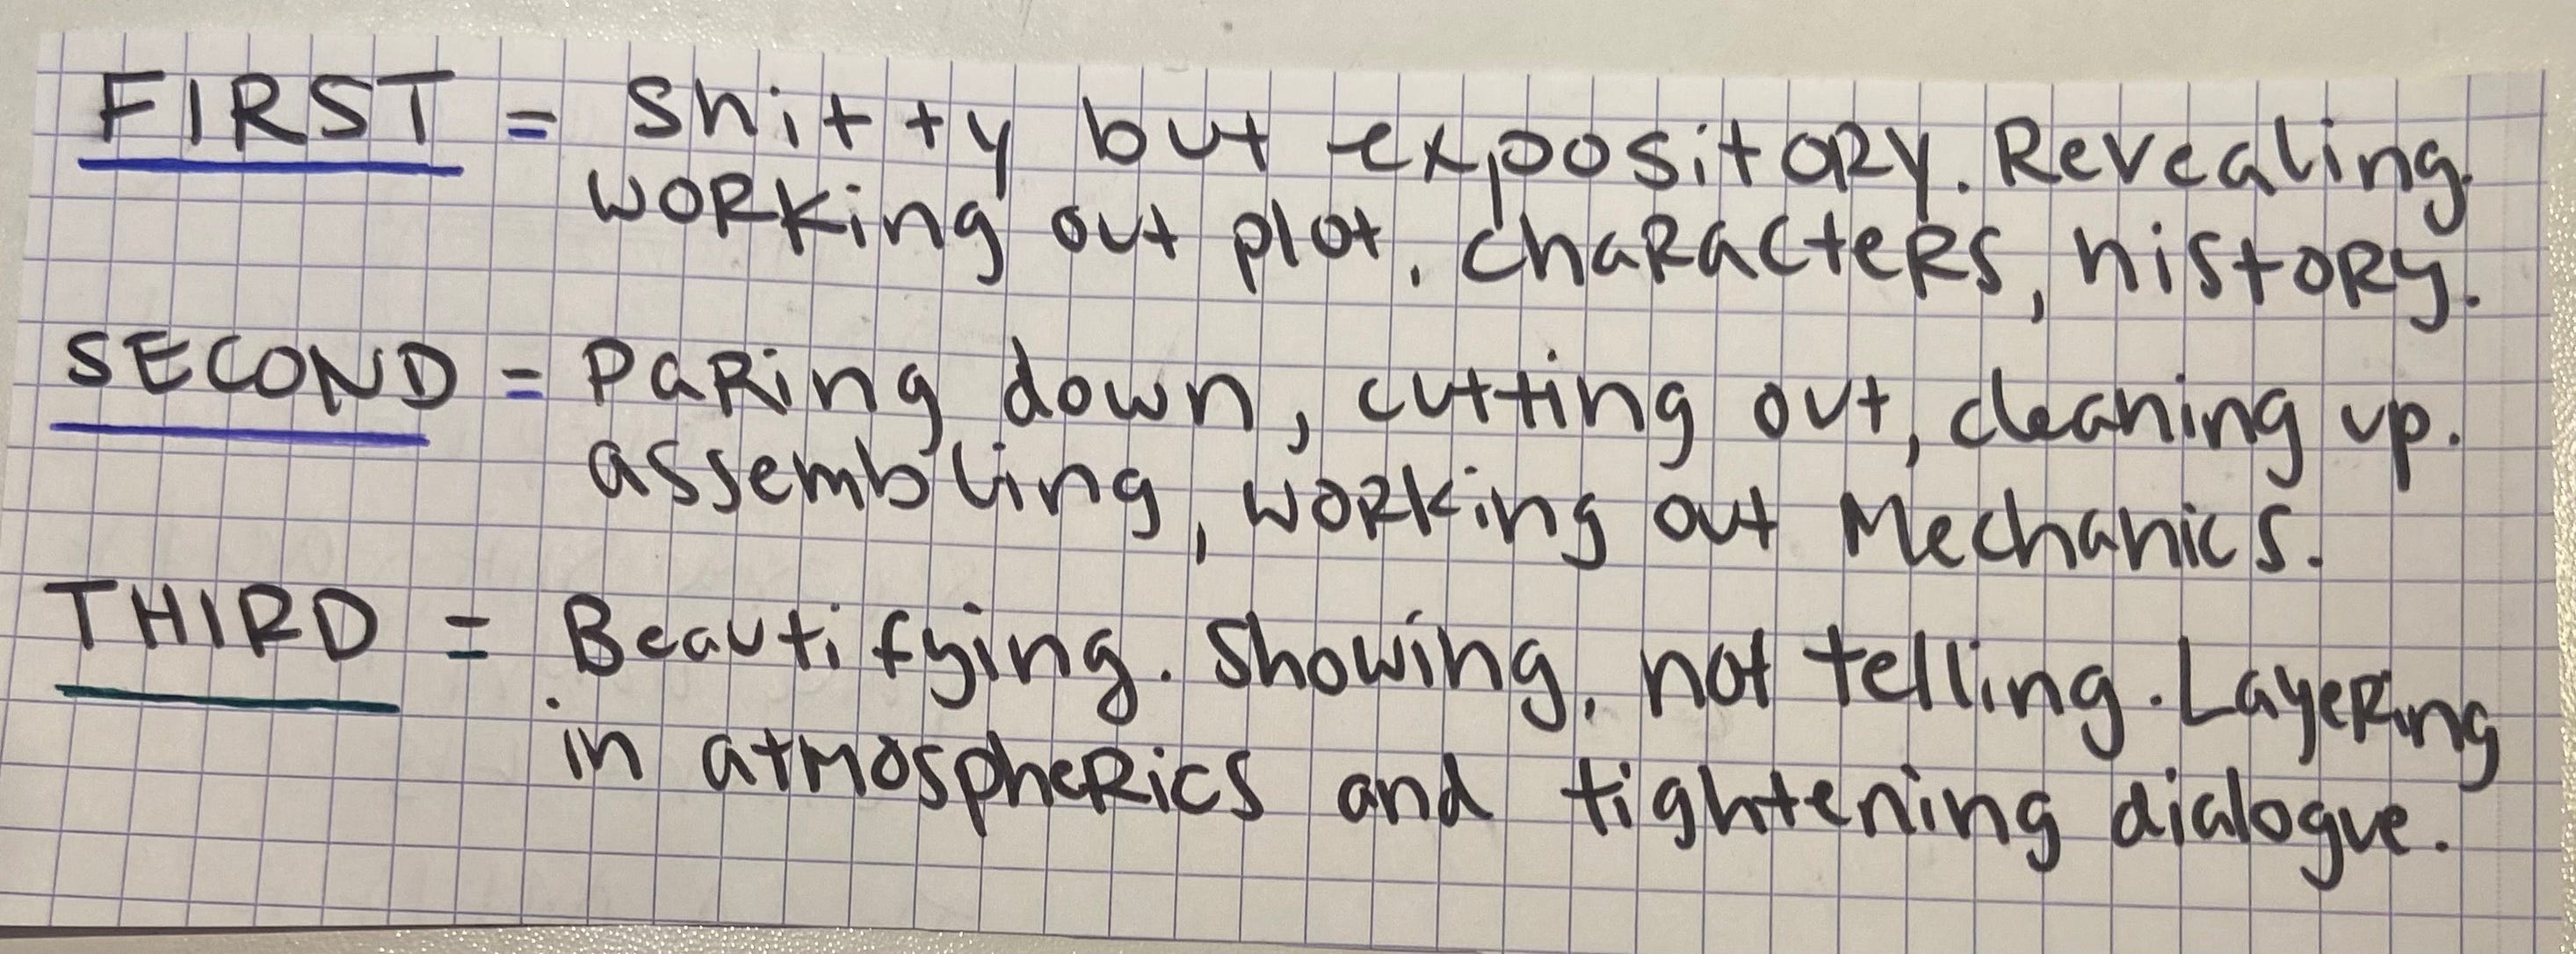 FIRST = Shitty but expository. Revealing.
working out plot, characters, history.
SECOND = Paring down, cutting out, cleaning up.
assembling, working out Mechanics.
THIRD = Beautifying. Showing, not telling. Layering
in atmospherics and tightening dialogue.